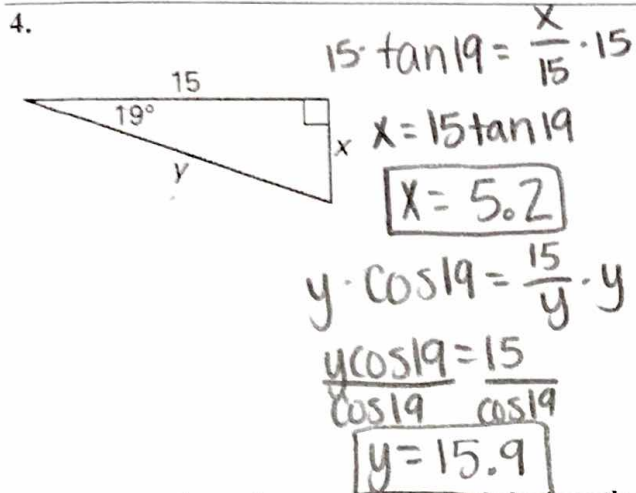 4.
15
19°
x
y
15· tan19 = x/15 · 15
x = 15tan19
x = 5.2
y · cos19 = 15/y · y
ycos19/cos19 = 15/cos19
y = 15.9